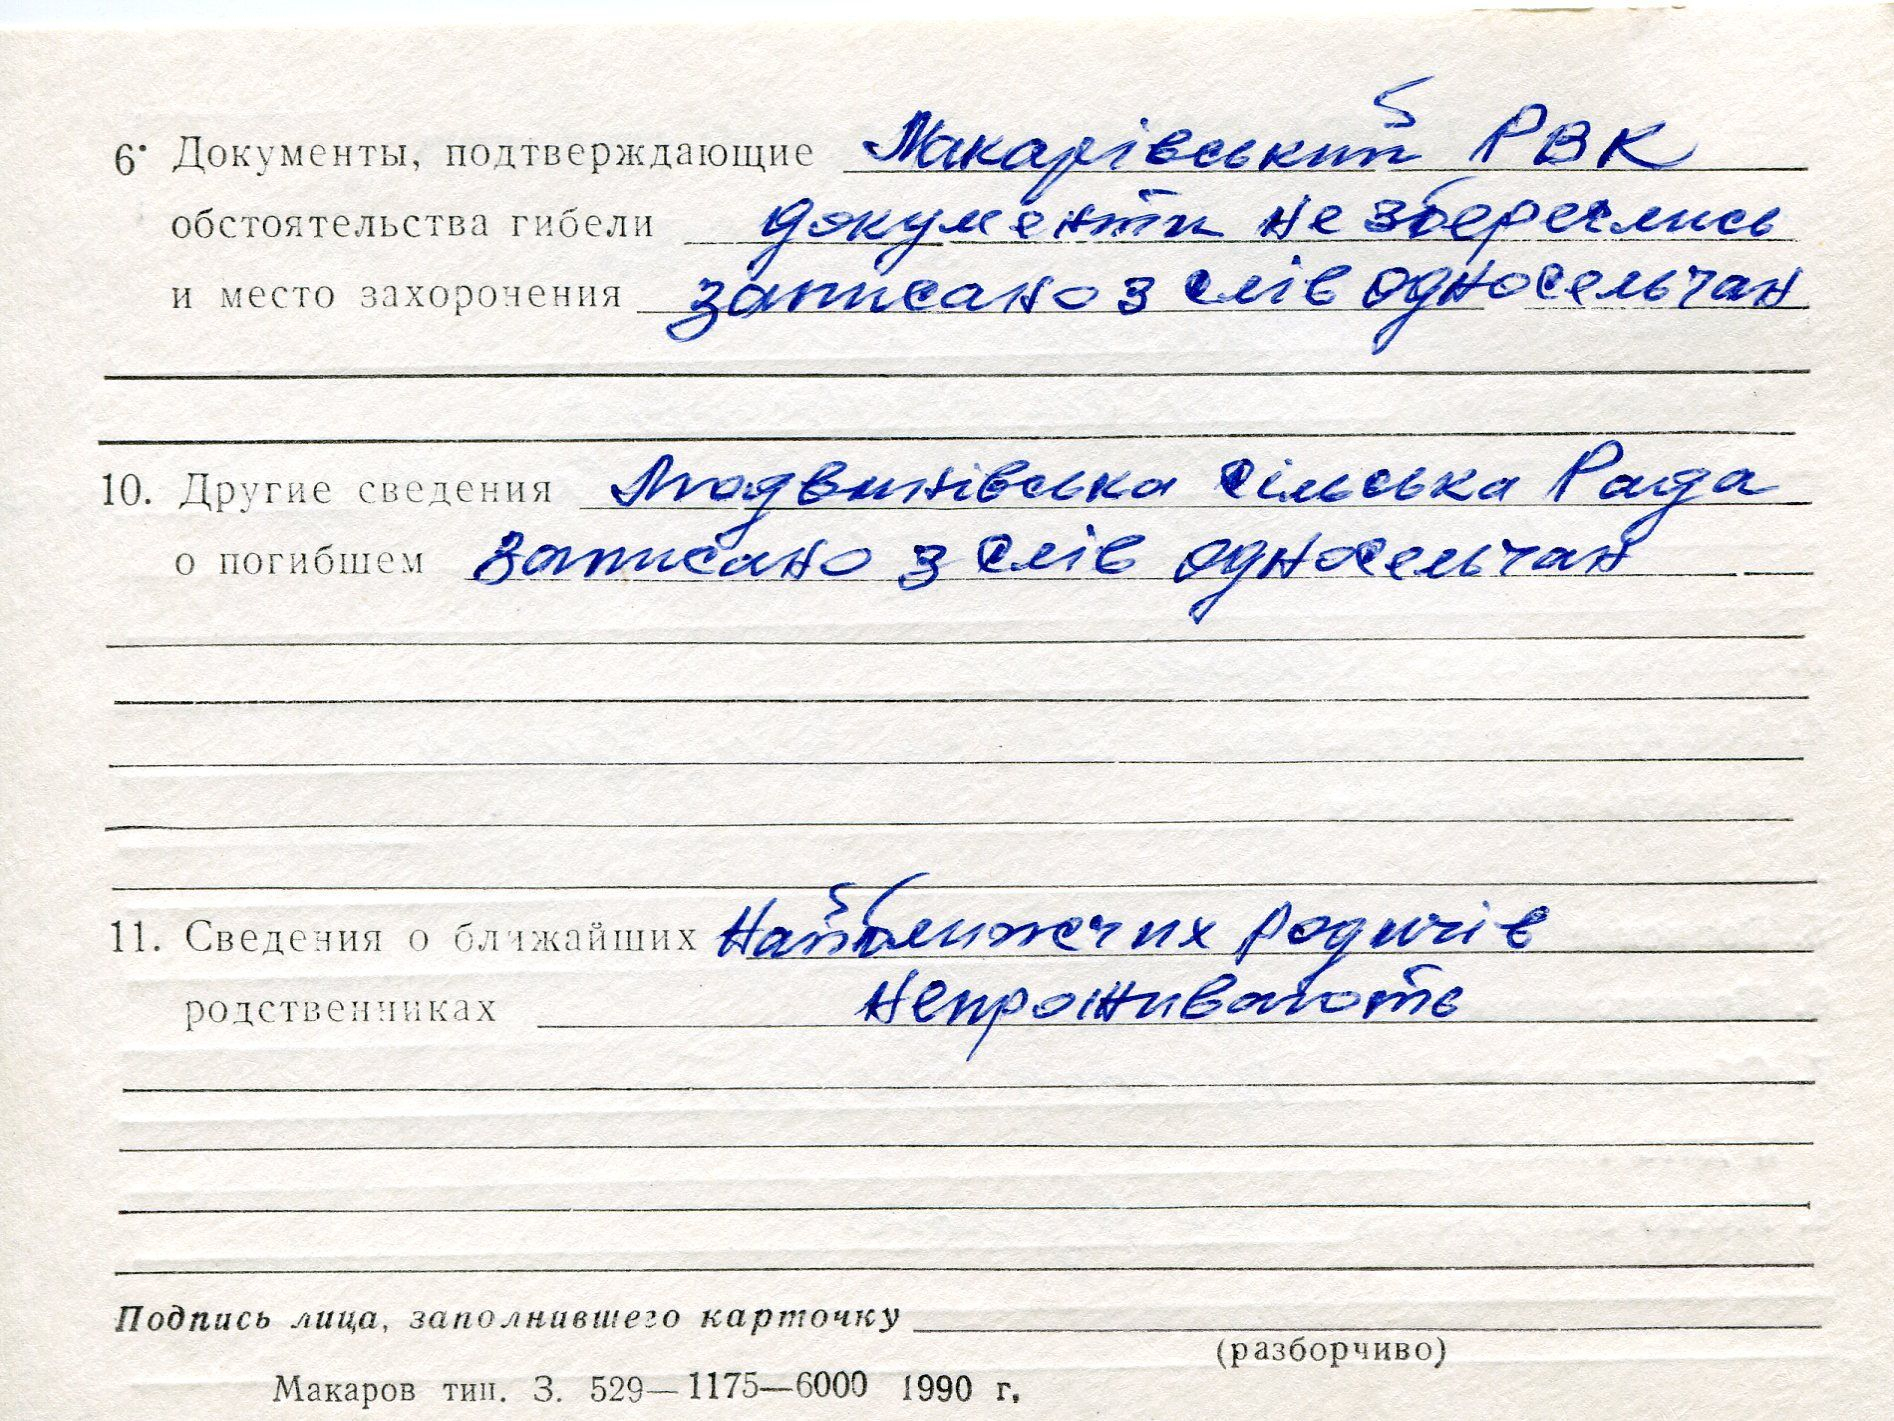 6. Документы, подтверждающие Макарівський РВК
обстоятельства гибели документи не збереглись
и место захоронения записано з слів односельчан
10. Другие сведения Людвинівська сільська Рада
о погибшем записано з слів односельчан
11. Сведения о ближайших Найближчих родичів
родственниках непроживають
Подпись лица, заполнившего карточку
(разборчиво)
Макаров тип. З. 529—1175—6000 1990 г.